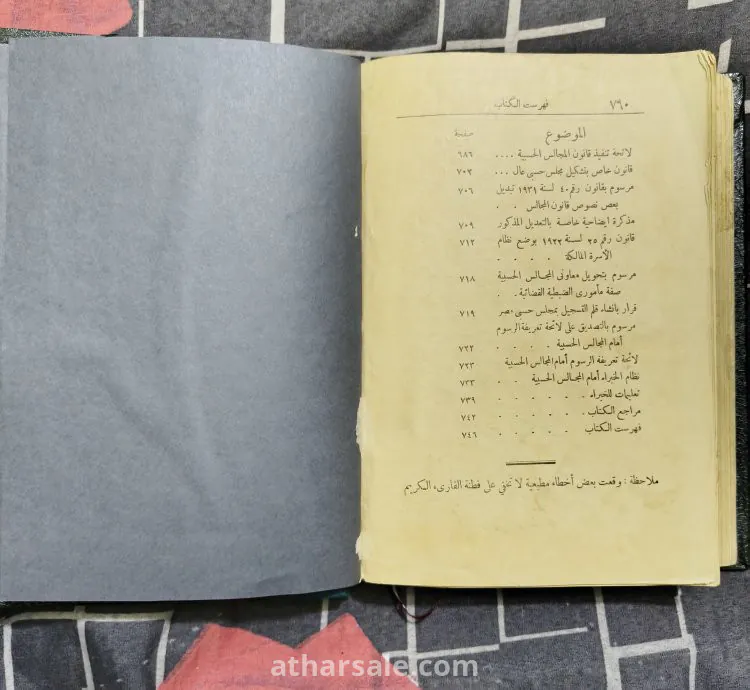 ٧٦٠ فهرست الكتاب
الموضوع صفحة
لائحة تنفيذ قانون المجالس الحسبية .... ٦٨٦
قانون خاص بتشكيل مجلس حسبى عال ... ٧٠٣
مرسوم بقانون رقم ٤٠ لسنة ١٩٣١ تبديل ٧٠٦
بعض نصوص قانون المجالس . .
مذكرة ايضاحية خاصة بالتعديل المذكور ٧٠٩
قانون رقم ٢٥ لسنة ١٩٢٢ بوضع نظام ٧١٢
الأسرة المالكة . . . .
مرسوم بتخويل معاونى المجالس الحسبية ٧١٨
صفة مأمورى الضبطية القضائية . .
قرار بانشاء قلم التسجيل بمجلس حسبى مصر ٧١٩
مرسوم بالتصديق على لائحة تعريفة الرسوم
أمام المجالس الحسبية . . . . ٧٢٢
لائحة تعريفة الرسوم أمام المجالس الحسبية ٧٢٣
نظام الخبراء أمام المجالس الحسبية . . ٧٣٣
تعليمات للخبراء . . . . . ٧٣٩
مراجع الكتاب . . . . . ٧٤٢
فهرست الكتاب . . . . . ٧٤٦
ملاحظة : وقعت بعض أخطاء مطبعية لا تخفى على فطنة القارىء الكريم
atharsale.com